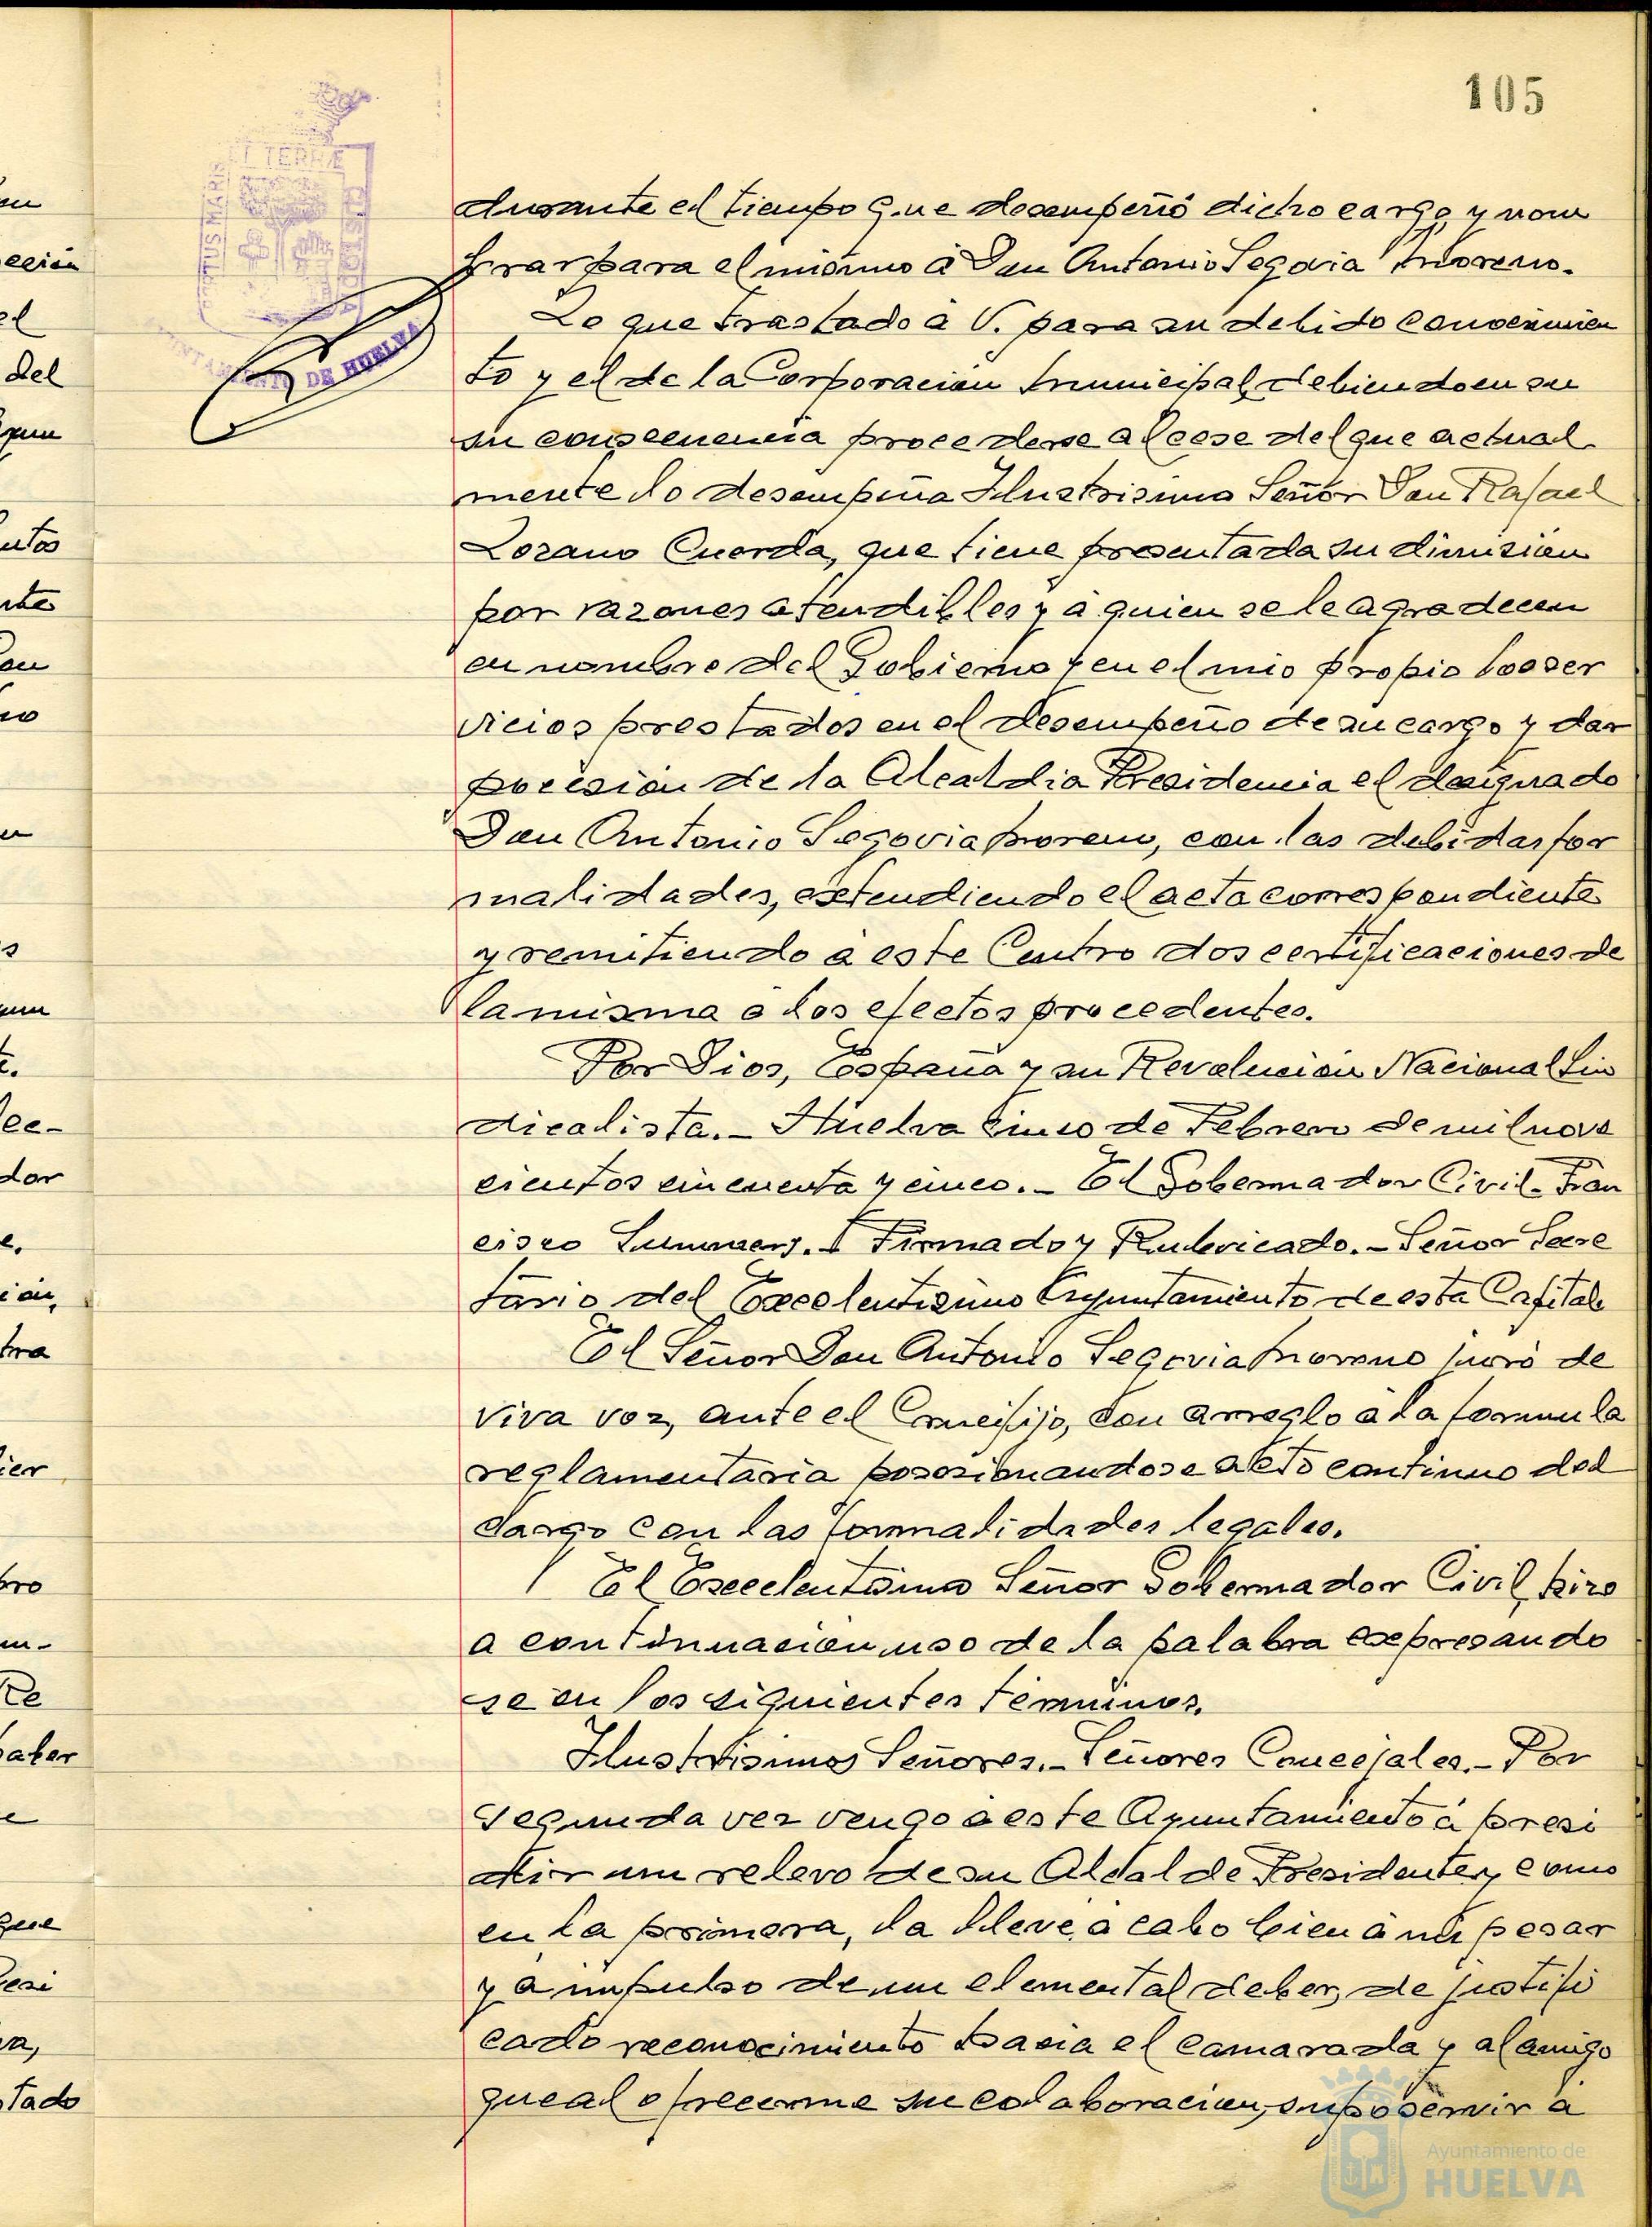 105
durante el tiempo que desempeñó dicho cargo, y nom
brar para el mismo á Don Antonio Segovia Moreno.
Lo que traslado á V. para su debido conocimien
to y el de la Corporacion Municipal, debiendo en su
su consecuencia procederse al cese del que actual
mente lo desempeña Ilustrisimo Señor Don Rafael
Lozano Cuerda, que tiene presentada su dimision
por razones atendibles y a quien se le agradecen
en nombre del Gobierno y en el mio propio los ser
vicios prestados en el desempeño de su cargo y dar
posesion de la Alcaldia Presidencia el designado
Don Antonio Segovia Moreno, con las debidas for
malidades, extendiendo el acta correspondiente
y remitiendo a este Centro dos certificaciones de
la misma a los efectos procedentes.
Por Dios, España y su Revolucion Nacional Sin
dicalista.- Huelva cinco de Febrero de mil nove
cientos cincuenta y cinco.- El Gobernador Civil- Fran
cisco Summers. Firmado y Rubricado.- Señor Secre
tario del Excelentisimo Ayuntamiento de esta Capital
El Señor Don Antonio Segovia Moreno juró de
viva voz, ante el Crucifijo, con arreglo a la formula
reglamentaria posesionandose acto continuo del
cargo con las formalidades legales.
El Excelentisimo Señor Gobernador Civil, hizo
a continuacion uso de la palabra expresando
se en los siguientes terminos.
Ilustrisimos Señores.- Señores Concejales.- Por
segunda vez vengo a este Ayuntamiento á presi
dir un relevo de su Alcalde Presidente y, como
en la primera, la lleve a cabo bien á mi pesar
y a impulso de un elemental deber, de justifi
cado reconocimiento hacia el camarada y al amigo
que al ofrecerme su colaboracion, supo servir a
ET TERRÆ
PORTUS MARIS
CUSTODIA
AYUNTAMIENTO DE HUELVA
Ayuntamiento de
HUELVA